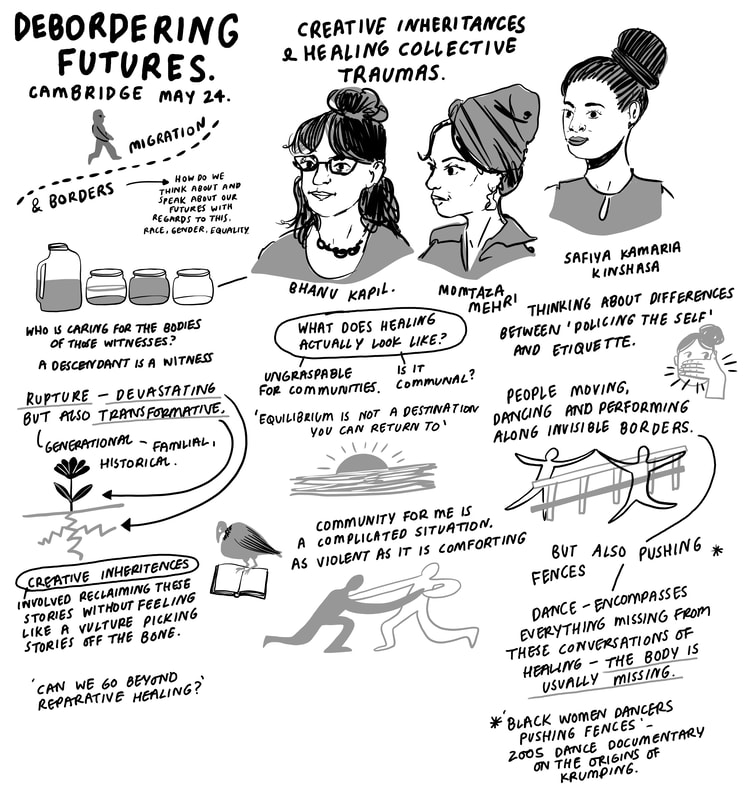 DEBORDERING
FUTURES.
CAMBRIDGE MAY 24.
CREATIVE INHERITANCES
& HEALING COLLECTIVE
TRAUMAS.
MIGRATION
& BORDERS
HOW DO WE
THINK ABOUT AND
SPEAK ABOUT OUR
FUTURES WITH
REGARDS TO THIS.
RACE, GENDER, EQUALITY
BHANU KAPIL.
MOMTAZA
MEHRI
SAFIYA KAMARIA
KINSHASA
WHO IS CARING FOR THE BODIES
OF THOSE WITNESSES?
A DESCENDANT IS A WITNESS
RUPTURE – DEVASTATING
BUT ALSO TRANSFORMATIVE.
GENERATIONAL – FAMILIAL,
HISTORICAL.
CREATIVE INHERITENCES
INVOLVED RECLAIMING THESE
STORIES WITHOUT FEELING
LIKE A VULTURE PICKING
STORIES OFF THE BONE.
'CAN WE GO BEYOND
REPARATIVE HEALING?'
WHAT DOES HEALING
ACTUALLY LOOK LIKE?
UNGRASPABLE
FOR COMMUNITIES.
IS IT
COMMUNAL?
'EQUILIBRIUM IS NOT A DESTINATION
YOU CAN RETURN TO'
COMMUNITY FOR ME IS
A COMPLICATED SITUATION.
AS VIOLENT AS IT IS COMFORTING
THINKING ABOUT DIFFERENCES
BETWEEN 'POLICING THE SELF'
AND ETIQUETTE.
PEOPLE MOVING,
DANCING AND PERFORMING
ALONG INVISIBLE BORDERS.
BUT ALSO PUSHING *
FENCES
DANCE – ENCOMPASSES
EVERYTHING MISSING FROM
THESE CONVERSATIONS OF
HEALING – THE BODY IS
USUALLY MISSING.
* 'BLACK WOMEN DANCERS
PUSHING FENCES' –
2005 DANCE DOCUMENTARY
ON THE ORIGINS OF
KRUMPING.